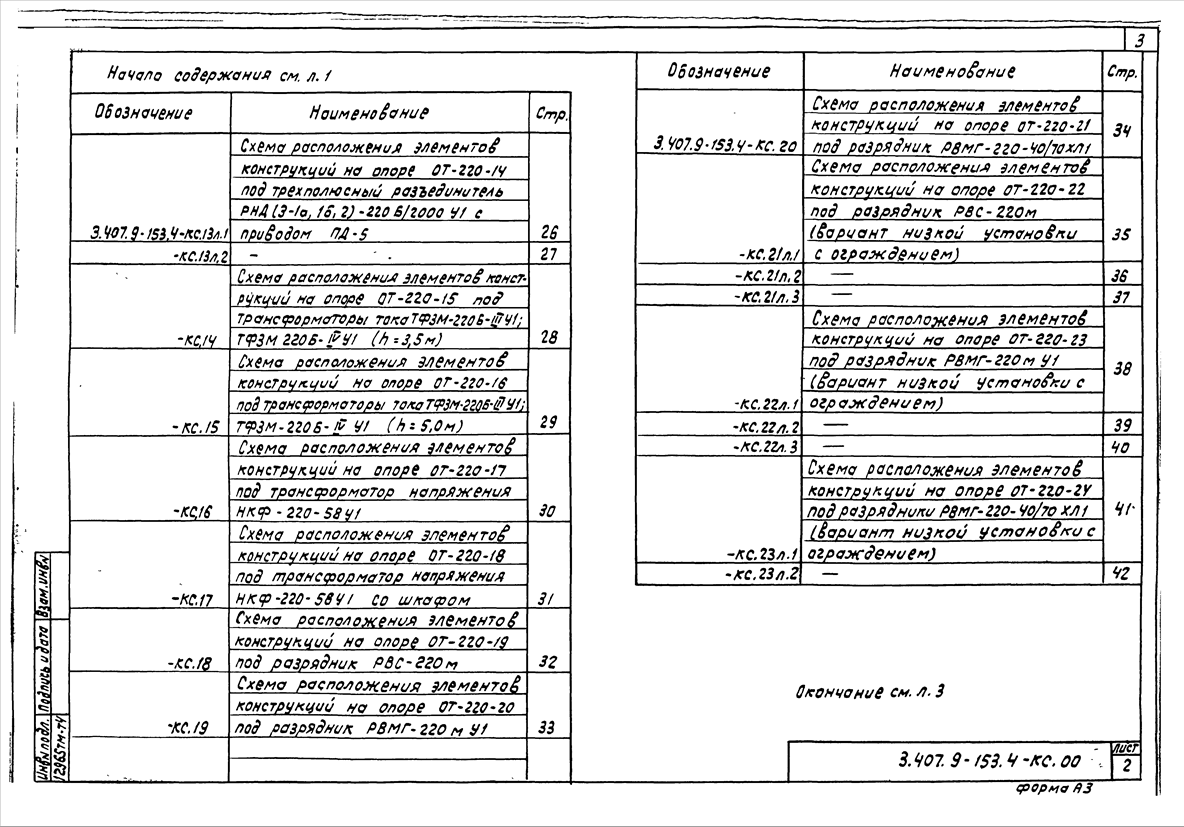 3
Начало содержания см. л. 1
Обозначение Наименование Стр.
Схема расположения элементов
конструкций на опоре ОТ-220-14
под трехполюсный разъединитель
РНД (3-1а, 1б, 2) - 220 Б/2000 У1 с
3.407.9-153.4-КС.13л.1 приводом ПД-5 26
-КС.13л.2 — 27
Схема расположения элементов конст-
рукций на опоре ОТ-220-15 под
трансформаторы тока ТФЗМ-220Б-III У1;
-КС.14 ТФЗМ 220Б-IV У1 (h=3,5м) 28
Схема расположения элементов
конструкций на опоре ОТ-220-16
под трансформаторы тока ТФЗМ-220Б-III У1;
-КС.15 ТФЗМ-220Б-IV У1 (h=5,0м) 29
Схема расположения элементов
конструкций на опоре ОТ-220-17
под трансформатор напряжения
-КС.16 НКФ-220-58У1 30
Схема расположения элементов
конструкций на опоре ОТ-220-18
под трансформатор напряжения
-КС.17 НКФ-220-58У1 со шкафом 31
Схема расположения элементов
конструкций на опоре ОТ-220-19
-КС.18 под разрядник РВС-220м 32
Схема расположения элементов
конструкций на опоре ОТ-220-20
-КС.19 под разрядник РВМГ-220м У1 33
Обозначение Наименование Стр.
Схема расположения элементов
конструкций на опоре ОТ-220-21
3.407.9-153.4-КС.20 под разрядник РВМГ-220-40/70ХЛ1 34
Схема расположения элементов
конструкций на опоре ОТ-220-22
под разрядник РВС-220м
(вариант низкой установки 35
-КС.21л.1 с ограждением)
-КС.21л.2 — 36
-КС.21л.3 — 37
Схема расположения элементов
конструкций на опоре ОТ-220-23
под разрядник РВМГ-220м У1 38
(вариант низкой установки с
-КС.22л.1 ограждением)
-КС.22л.2 — 39
-КС.22л.3 — 40
Схема расположения элементов
конструкций на опоре ОТ-220-24
под разрядники РВМГ-220-40/70 ХЛ1 41
(вариант низкой установки с
-КС.23л.1 ограждением)
-КС.23л.2 — 42
Окончание см. л. 3
3.407.9-153.4-КС.00
Лист
2
форма А3
Инв.№ подл. Подпись и дата Взам.инв.№
12965тм-т4